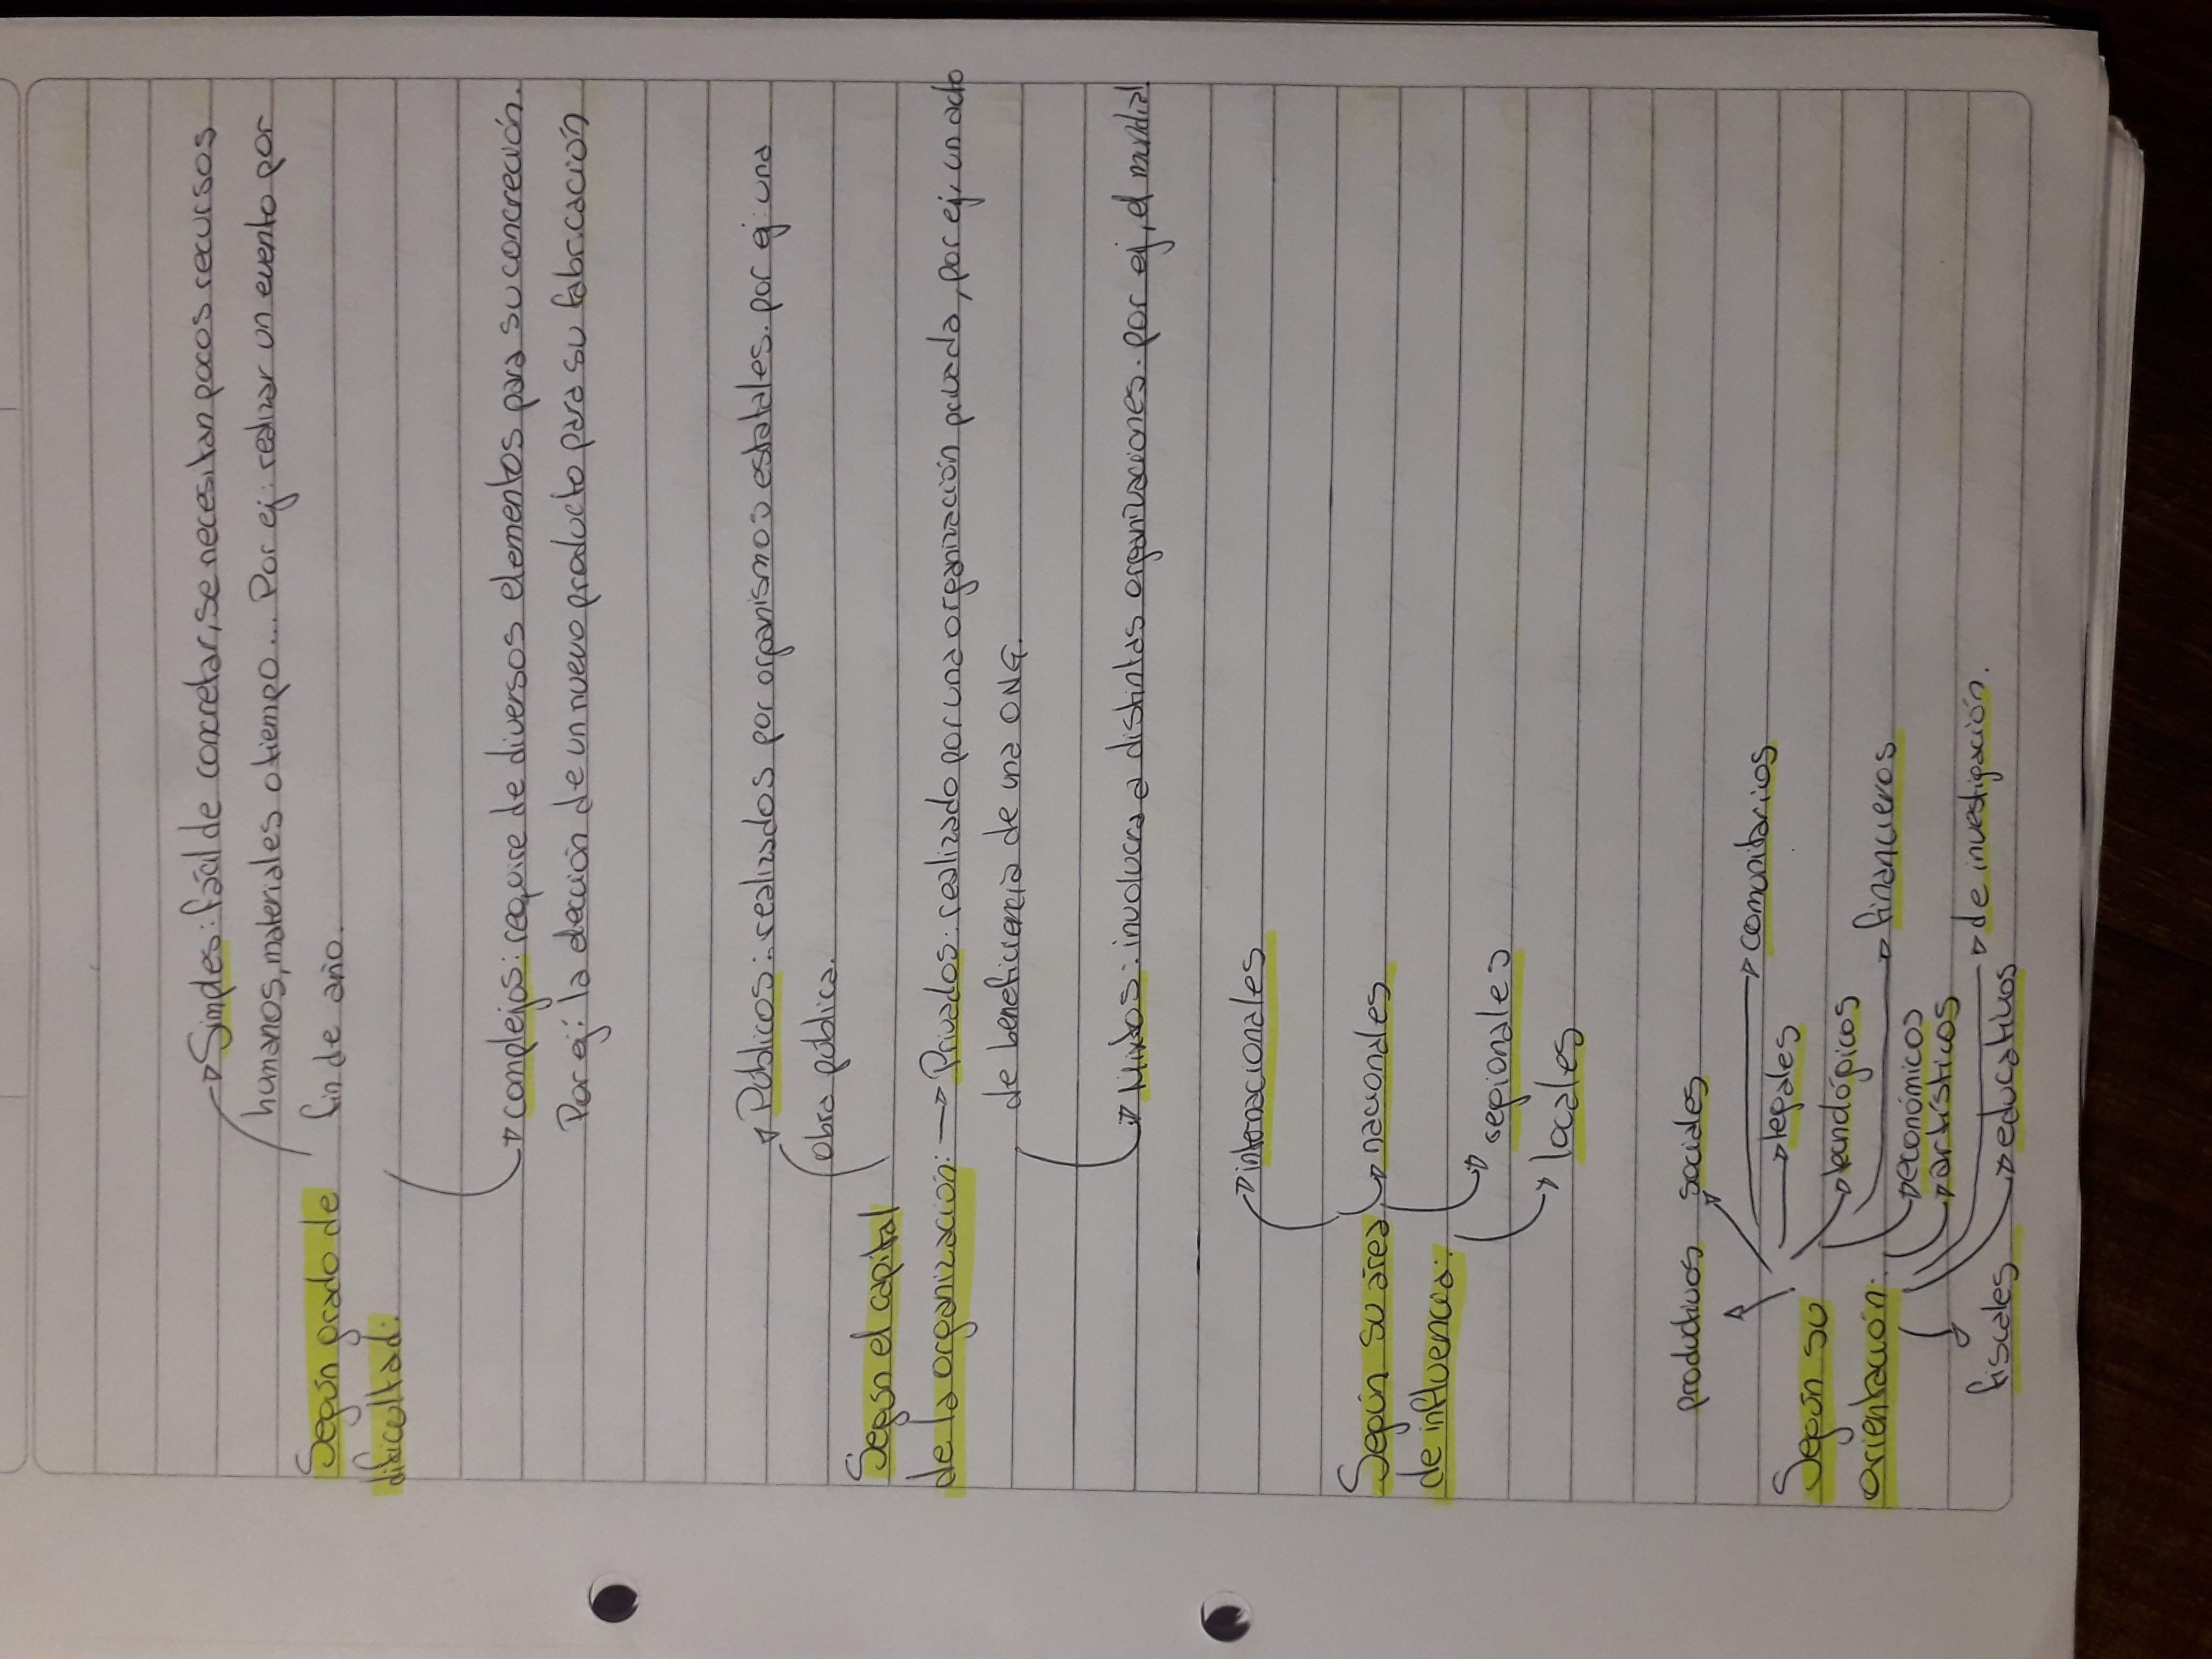 Simples: fácil de concretar, se necesitan pocos recursos
humanos, materiales o tiempo... Por ej: realizar un evento por
fin de año.
Según grado de
dificultad:
complejos: require de diversos elementos para su concreción.
Por ej: la elección de un nuevo producto para su fabricación
Públicos: realizados por organismos estatales. por ej: una
obra pública.
Según el capital
de la organización: → Privados: realizado por una organización privada, por ej, un acto
de beneficiencia de una ONG.
Mixtos: involucra a distintas organizaciones. por ej, el mundial
internacionales
Según su área → nacionales
de influencia:
regionales
locales
productivos sociales
comunitarios
legales
Según su
financieros
orientación:
económicos
artísticos
de investigación.
educativos
fiscales